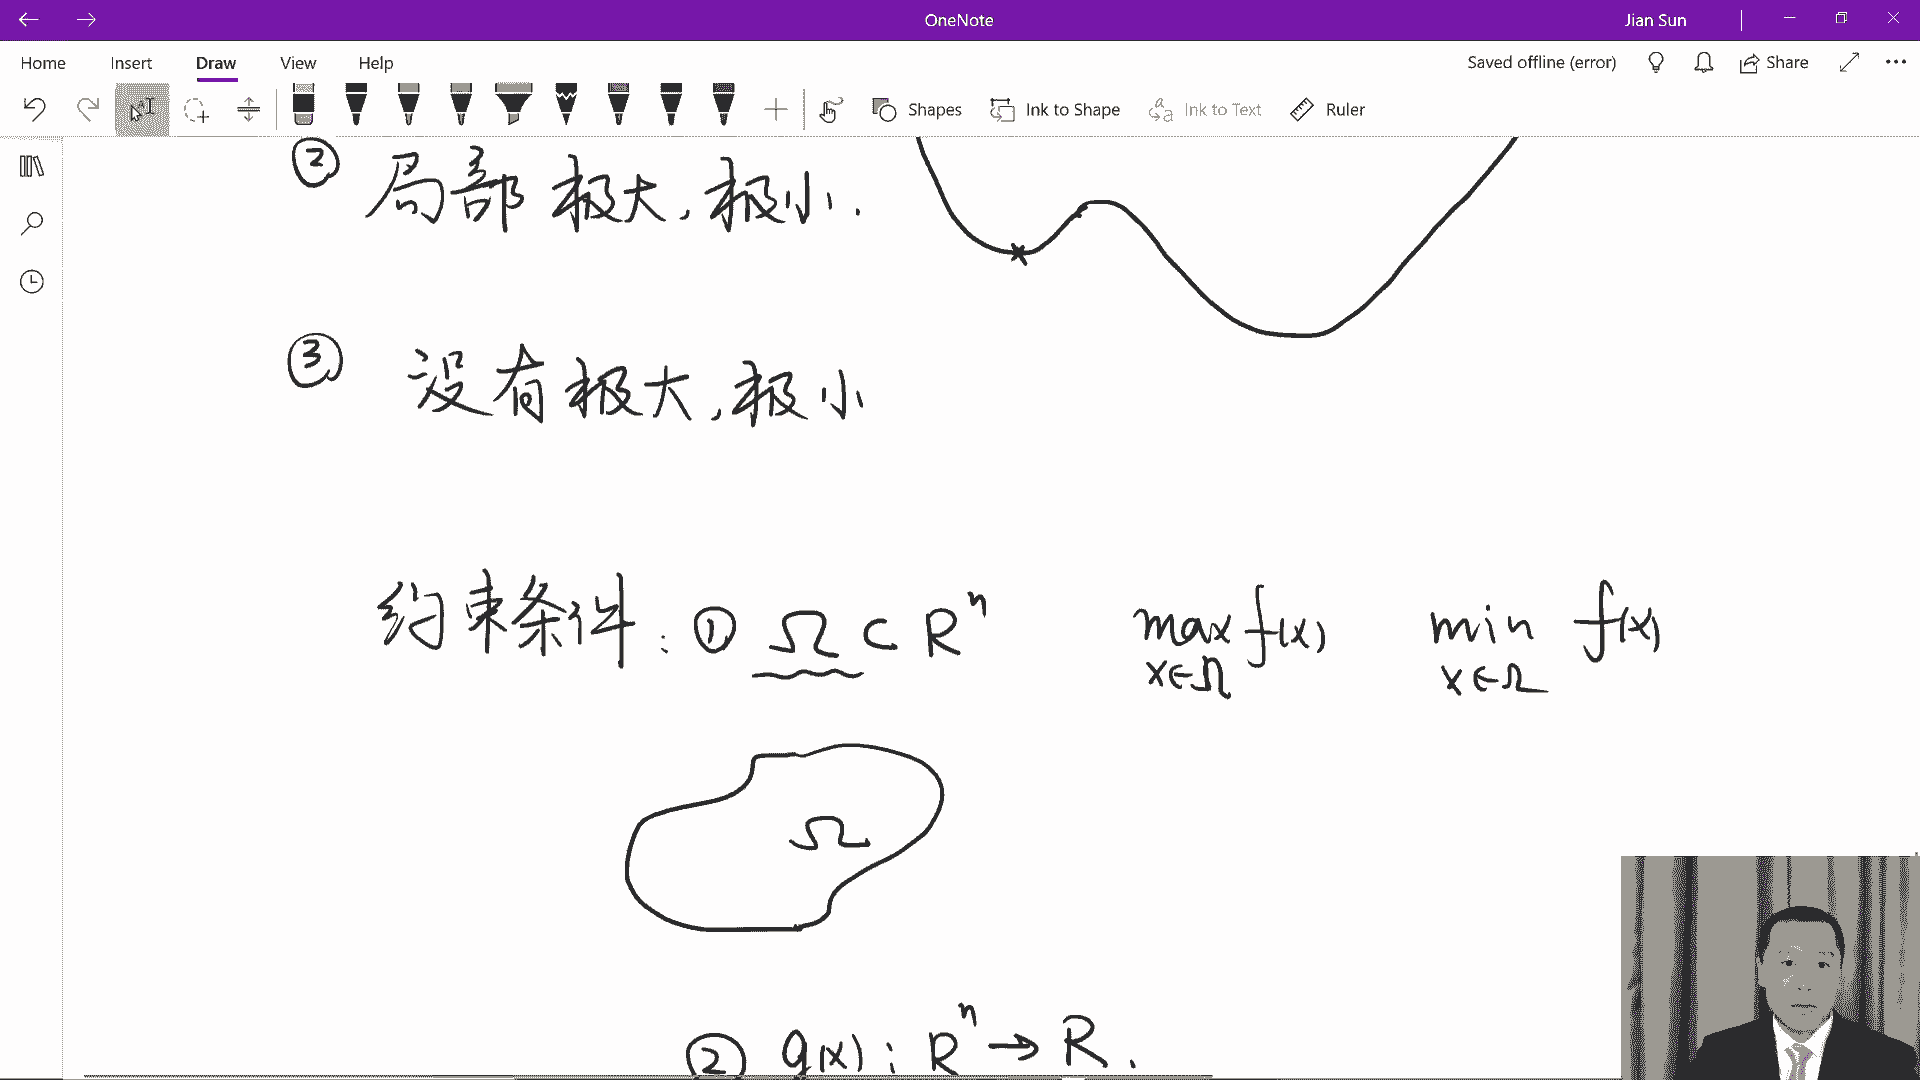 OneNote
Jian Sun
Home Insert Draw View Help
Saved offline (error) Share
Shapes Ink to Shape Ink to Text Ruler
② 局部极大,极小.
③ 没有极大,极小
约束条件: ① Ω ⊂ Rⁿ max f(x) min f(x)
x∈Ω x∈Ω
Ω
② g(x): Rⁿ → R.